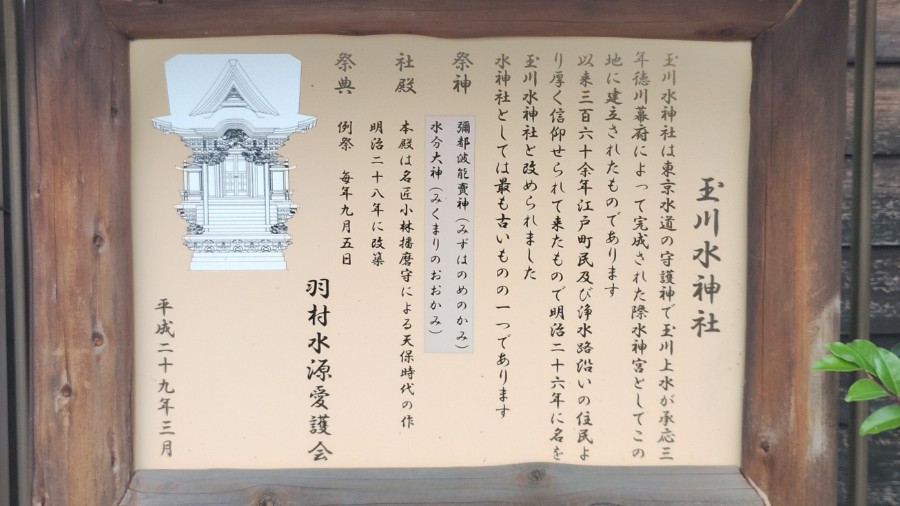 玉川水神社
玉川水神社は東京水道の守護神で玉川上水が承応三
年徳川幕府によって完成された際水神宮としてこの
地に建立されたものであります
以来三百六十余年江戸町民及び浄水路沿いの住民よ
り厚く信仰せられて来たもので明治二十六年に名を
玉川水神社と改められました
水神社としては最も古いものの一つであります
祭神 彌都波能賣神(みずはのめのかみ)
水分大神(みくまりのおおかみ)
社殿 本殿は名匠小林播磨守による天保時代の作
明治二十八年に改築
祭典 例祭 毎年九月五日
羽村水源愛護会
平成二十九年三月